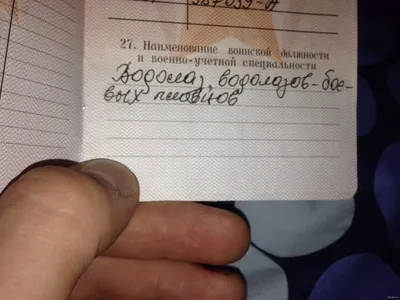 987099-А
27. Наименование воинской должности
и военно-учетной специальности
Водолаз, водолазов-бое-
вых пловцов